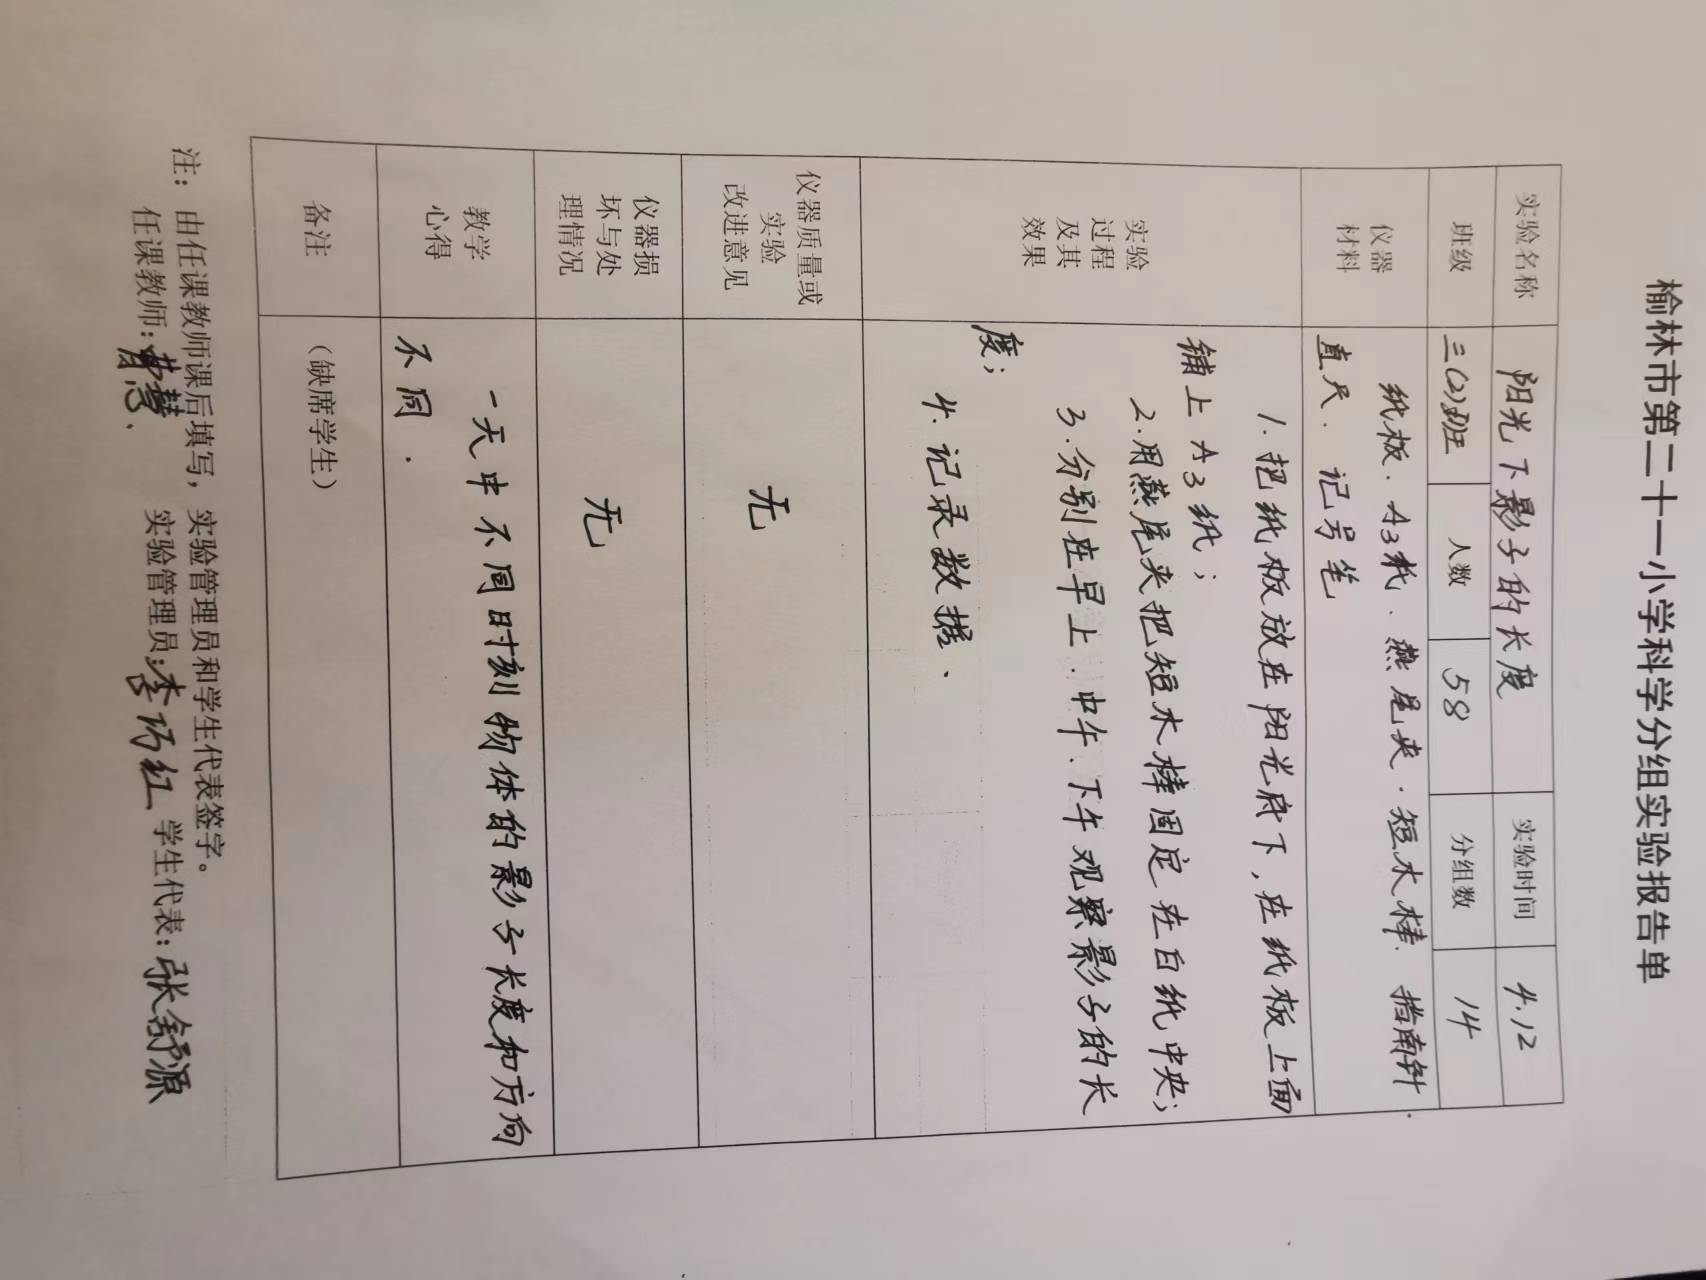 榆林市第二十一小学科学分组实验报告单
实验名称 阳光下影子的长度 实验时间 4.12
班级 三(2)班 人数 58 分组数 14
仪器
材料
纸板．A3纸．燕尾夹．短木棒．指南针．
直尺．记号笔
实验
过程
及其
效果
1. 把纸板放在阳光底下，在纸板上面
铺上A3纸；
2. 用燕尾夹把短木棒固定在白纸中央；
3. 分别在早上．中午．下午观察影子的长
度；
4. 记录数据．
仪器质量或
实验
改进意见
无
仪器损
坏与处
理情况
无
教学
心得
一天中不同时刻物体的影子长度和方向
不同．
备注 （缺席学生）
注：由任课教师课后填写，实验管理员和学生代表签字。
任课教师： 实验管理员：李巧红 学生代表：张舒源